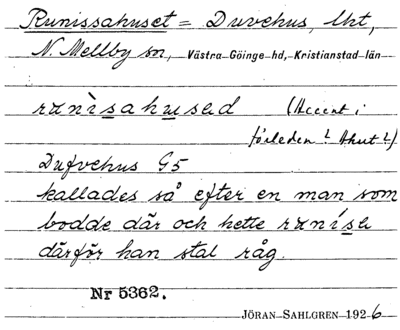 Runissahuset = Duvehus, lht,
N. Mellby sn, Västra Göinge hd, Kristianstad län
runìsahused (Accent i
förleden? Akut?)
Dufvehus G5
kallades så efter en man som
bodde där och hette runíse
därför han stal råg.
Nr 5362.
JÖRAN SAHLGREN 1926